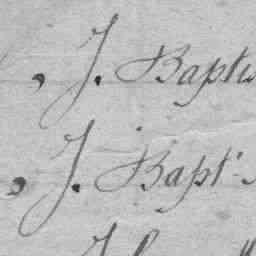 , J. Baptis
, J. Bapt.